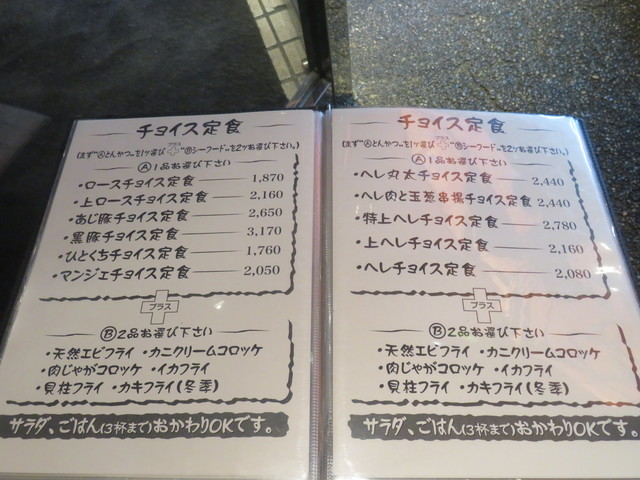 チョイス定食
(まず"Ⓐとんかつ"を1ヶ選び プラス "Ⓑシーフード"を2ヶお選び下さい。)
Ⓐ1品お選び下さい
・ロースチョイス定食 1,870
・上ロースチョイス定食 2,160
・あじ豚チョイス定食 2,650
・黒豚チョイス定食 3,170
・ひとくちチョイス定食 1,760
・マンジェチョイス定食 2,050
プラス
Ⓑ2品お選び下さい
・天然エビフライ ・カニクリームコロッケ
・肉じゃがコロッケ ・イカフライ
・貝柱フライ ・カキフライ(冬季)
サラダ、ごはん(3杯まで)おかわりOKです。
チョイス定食
(まず"Ⓐとんかつ"を1ヶ選び プラス "Ⓑシーフード"を2ヶお選び下さい。)
Ⓐ1品お選び下さい
・ヘレ丸太チョイス定食 2,440
・ヘレ肉と玉葱串揚チョイス定食 2,440
・特上ヘレチョイス定食 2,780
・上ヘレチョイス定食 2,160
・ヘレチョイス定食 2,080
プラス
Ⓑ2品お選び下さい
・天然エビフライ ・カニクリームコロッケ
・肉じゃがコロッケ ・イカフライ
・貝柱フライ ・カキフライ(冬季)
サラダ、ごはん(3杯まで)おかわりOKです。